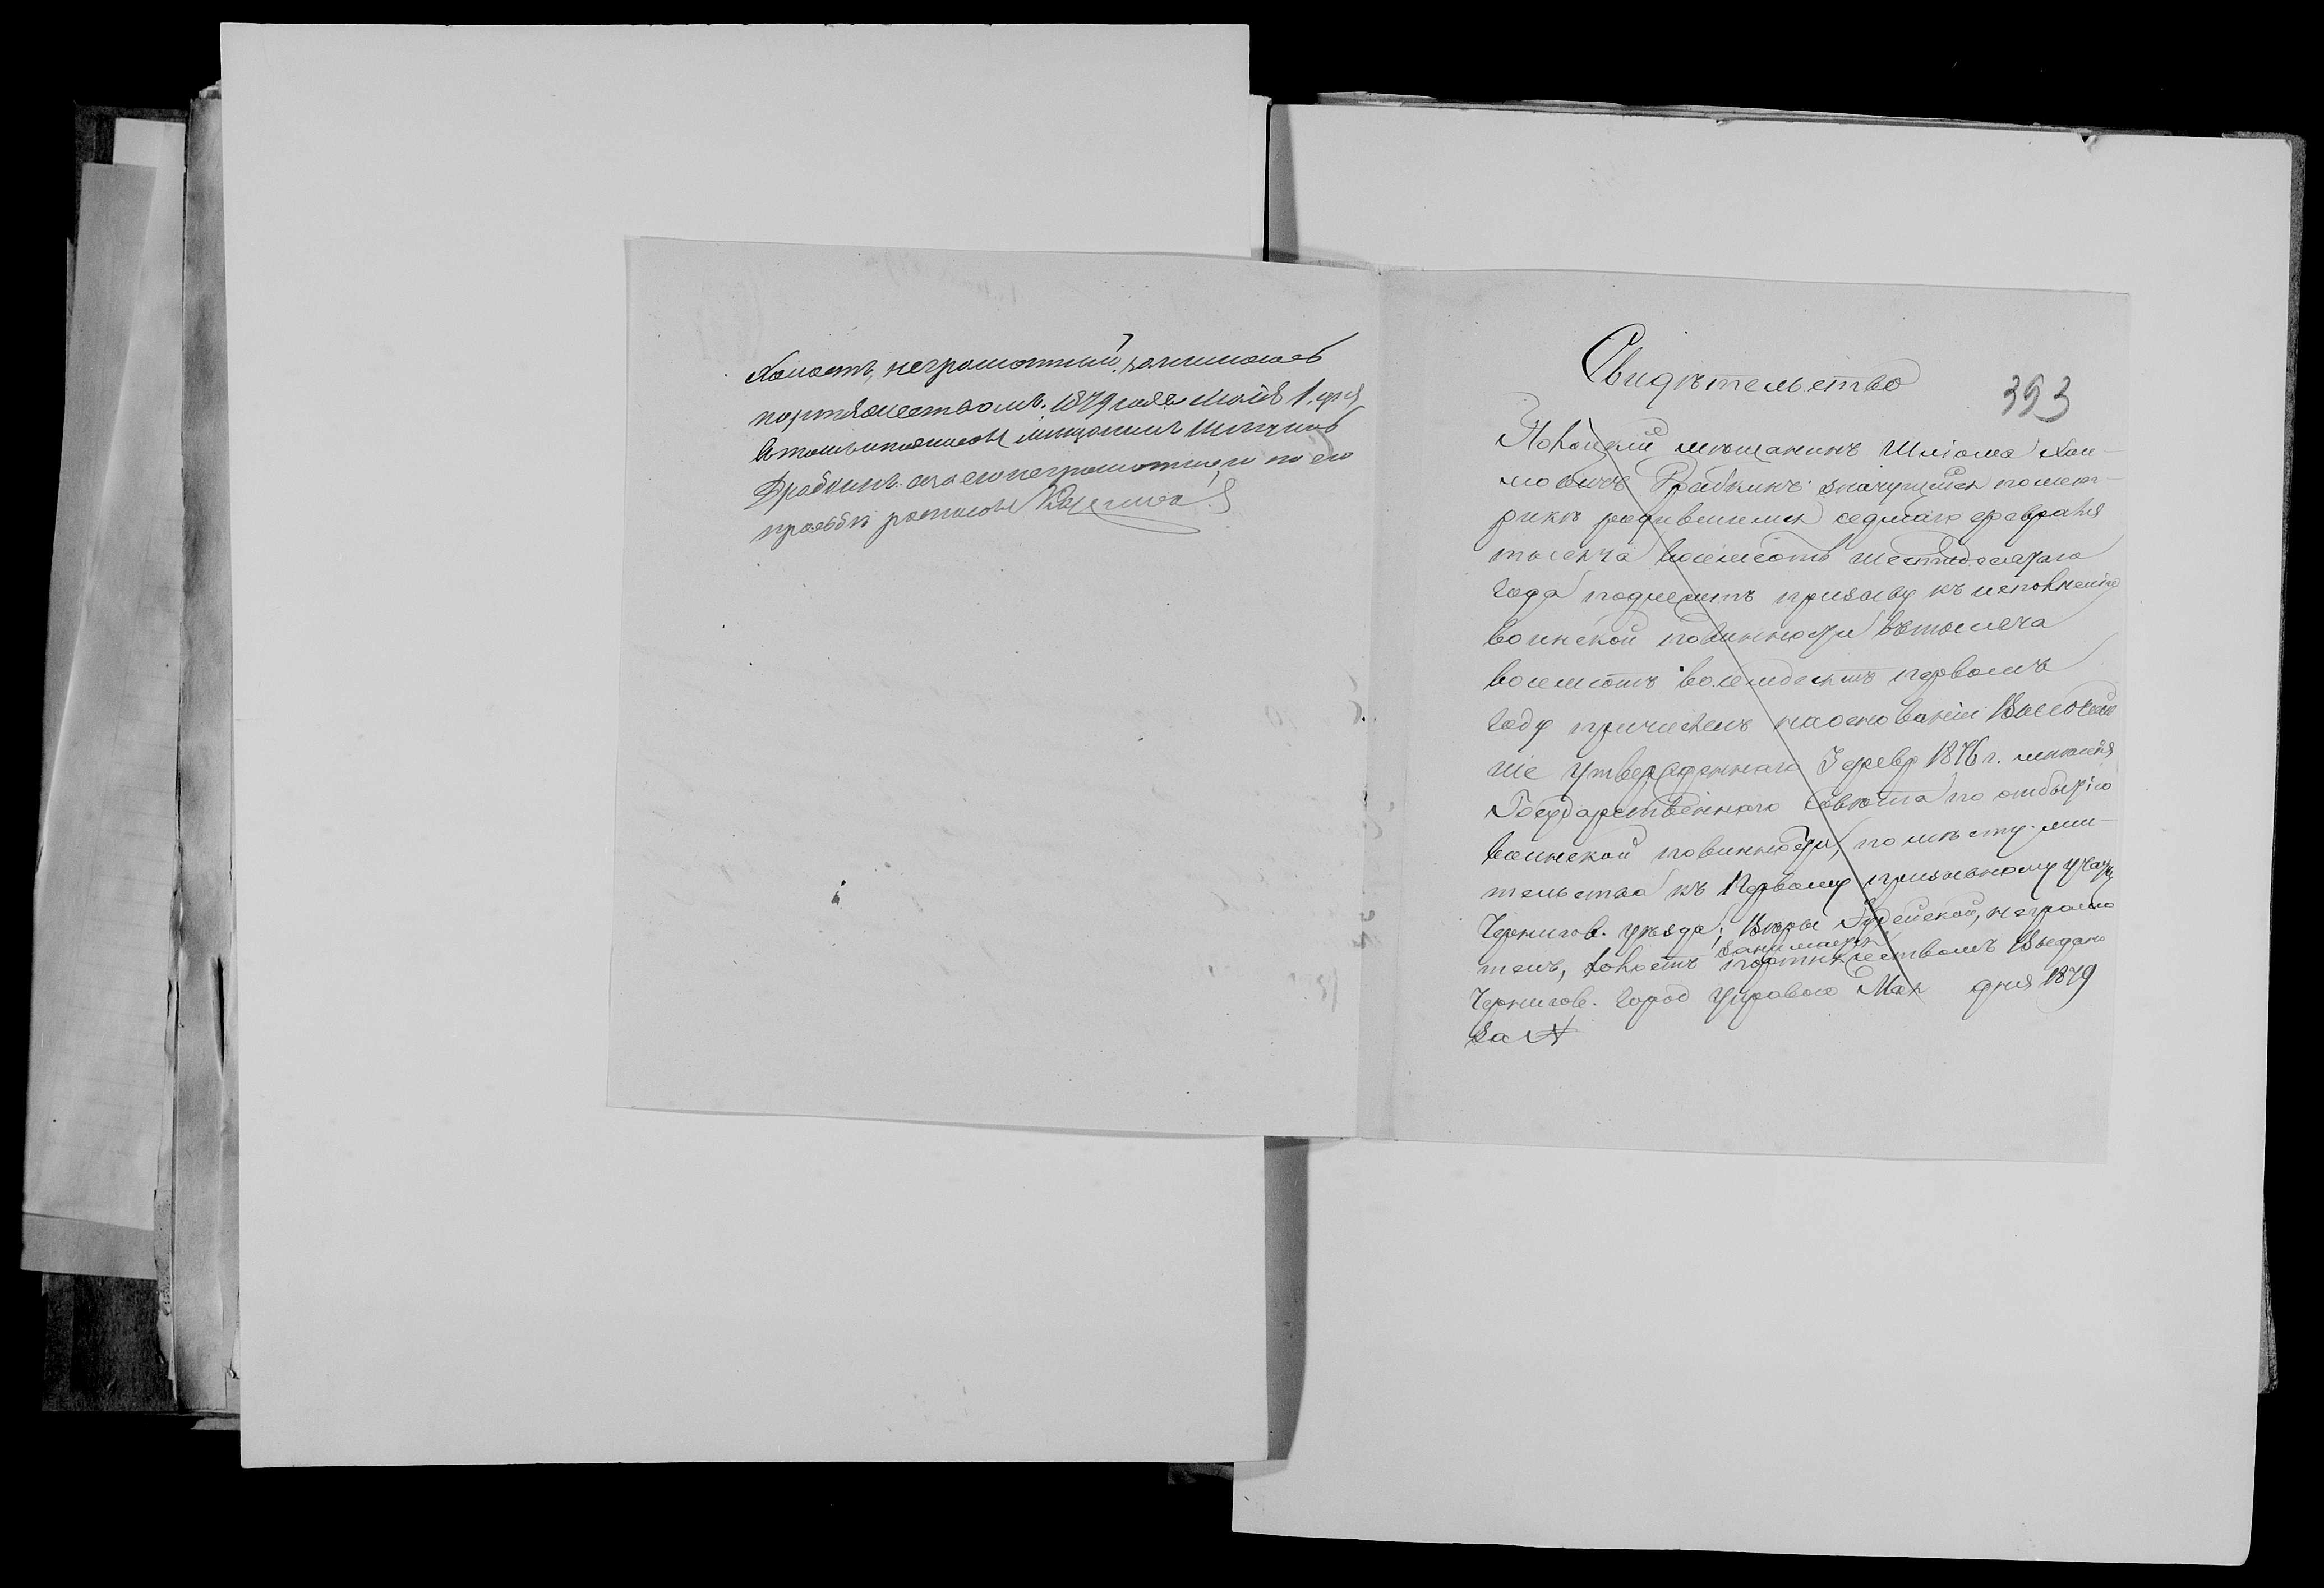 Холостъ, неграмотный, занимаюсь
портяжествомъ. 1879 года Мая 1. дня
въ томъ подписом мещанинъ
Драбкинъ а за его неграмотнаго по его
прозьбѣ росписом
Свидѣтельство
393
мѣшанинъ Шліома Хаи-
мовичъ Рабкинъ значущійся по мет-
рикѣ родившимся седмаго февраля
тысеича восемсотъ шестидесятаго
года подлежитъ призыву къ исполненію
воинской повинности въ тысеча
восемсотъ восемдесятъ первомъ
году причисленъ на основаніи Высочай
ше утвержденнаго 3 февр 1876 г. мнѣнія
Государственнаго Совѣта по отбытію
воинской повинности, по мѣсту жи-
тельства къ Первому призывному участку
Чернигов. уѣзда; Вѣры Еврейской, неграмо
тенъ, холостъ занимается портняжествомъ Выдано
Чернигов. город Управою Мая дня 1879
за №